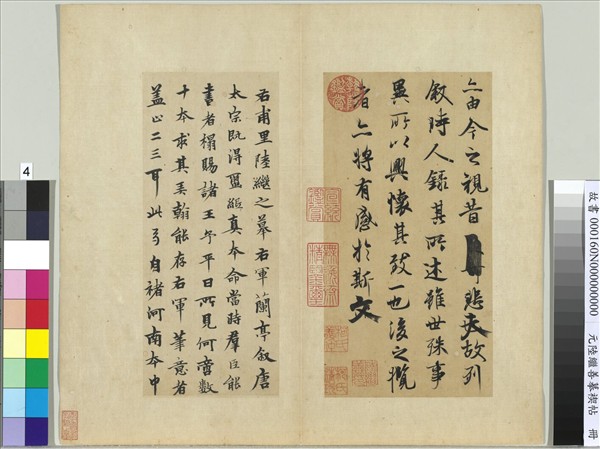 亦由今之視昔悲夫故列
敘時人錄其所述雖世殊事
異所以興懷其致一也後之攬
者亦將有感於斯文
右甫里陸繼之摹右軍蘭亭敘唐
太宗既得眞本命當時羣臣能
書者搨賜諸王余平日所見何啻數
十本求其筆意者
蓋止二三耳此乃自褚河南本中
4
故書000160N000000000 元陸繼善摹禊帖 冊